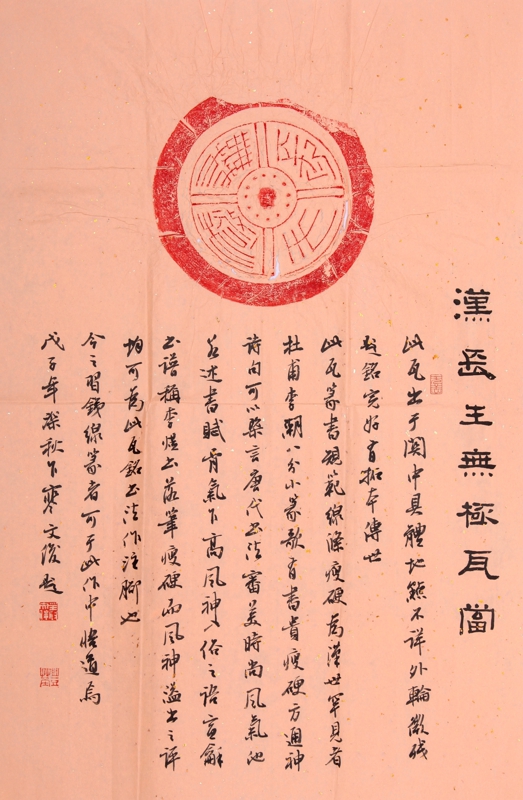 漢長生無極瓦當
此瓦出于關中具體地點不詳外輪微殘
銘完好有拓本傳世
此瓦篆書規範線條瘦硬為漢世罕見者
杜甫李潮八分小篆歌有書貴瘦硬方通神
詩句可以槩言唐代書法審美時尚風氣他
若述書賦骨氣下高風神入俗之語宣龢
書譜稱李煜書落筆瘦硬而風神溢出之評
均可為此瓦銘書法作注腳也
今之習鐵線篆者可于此作中悟道焉
戊子年深秋下文俊題